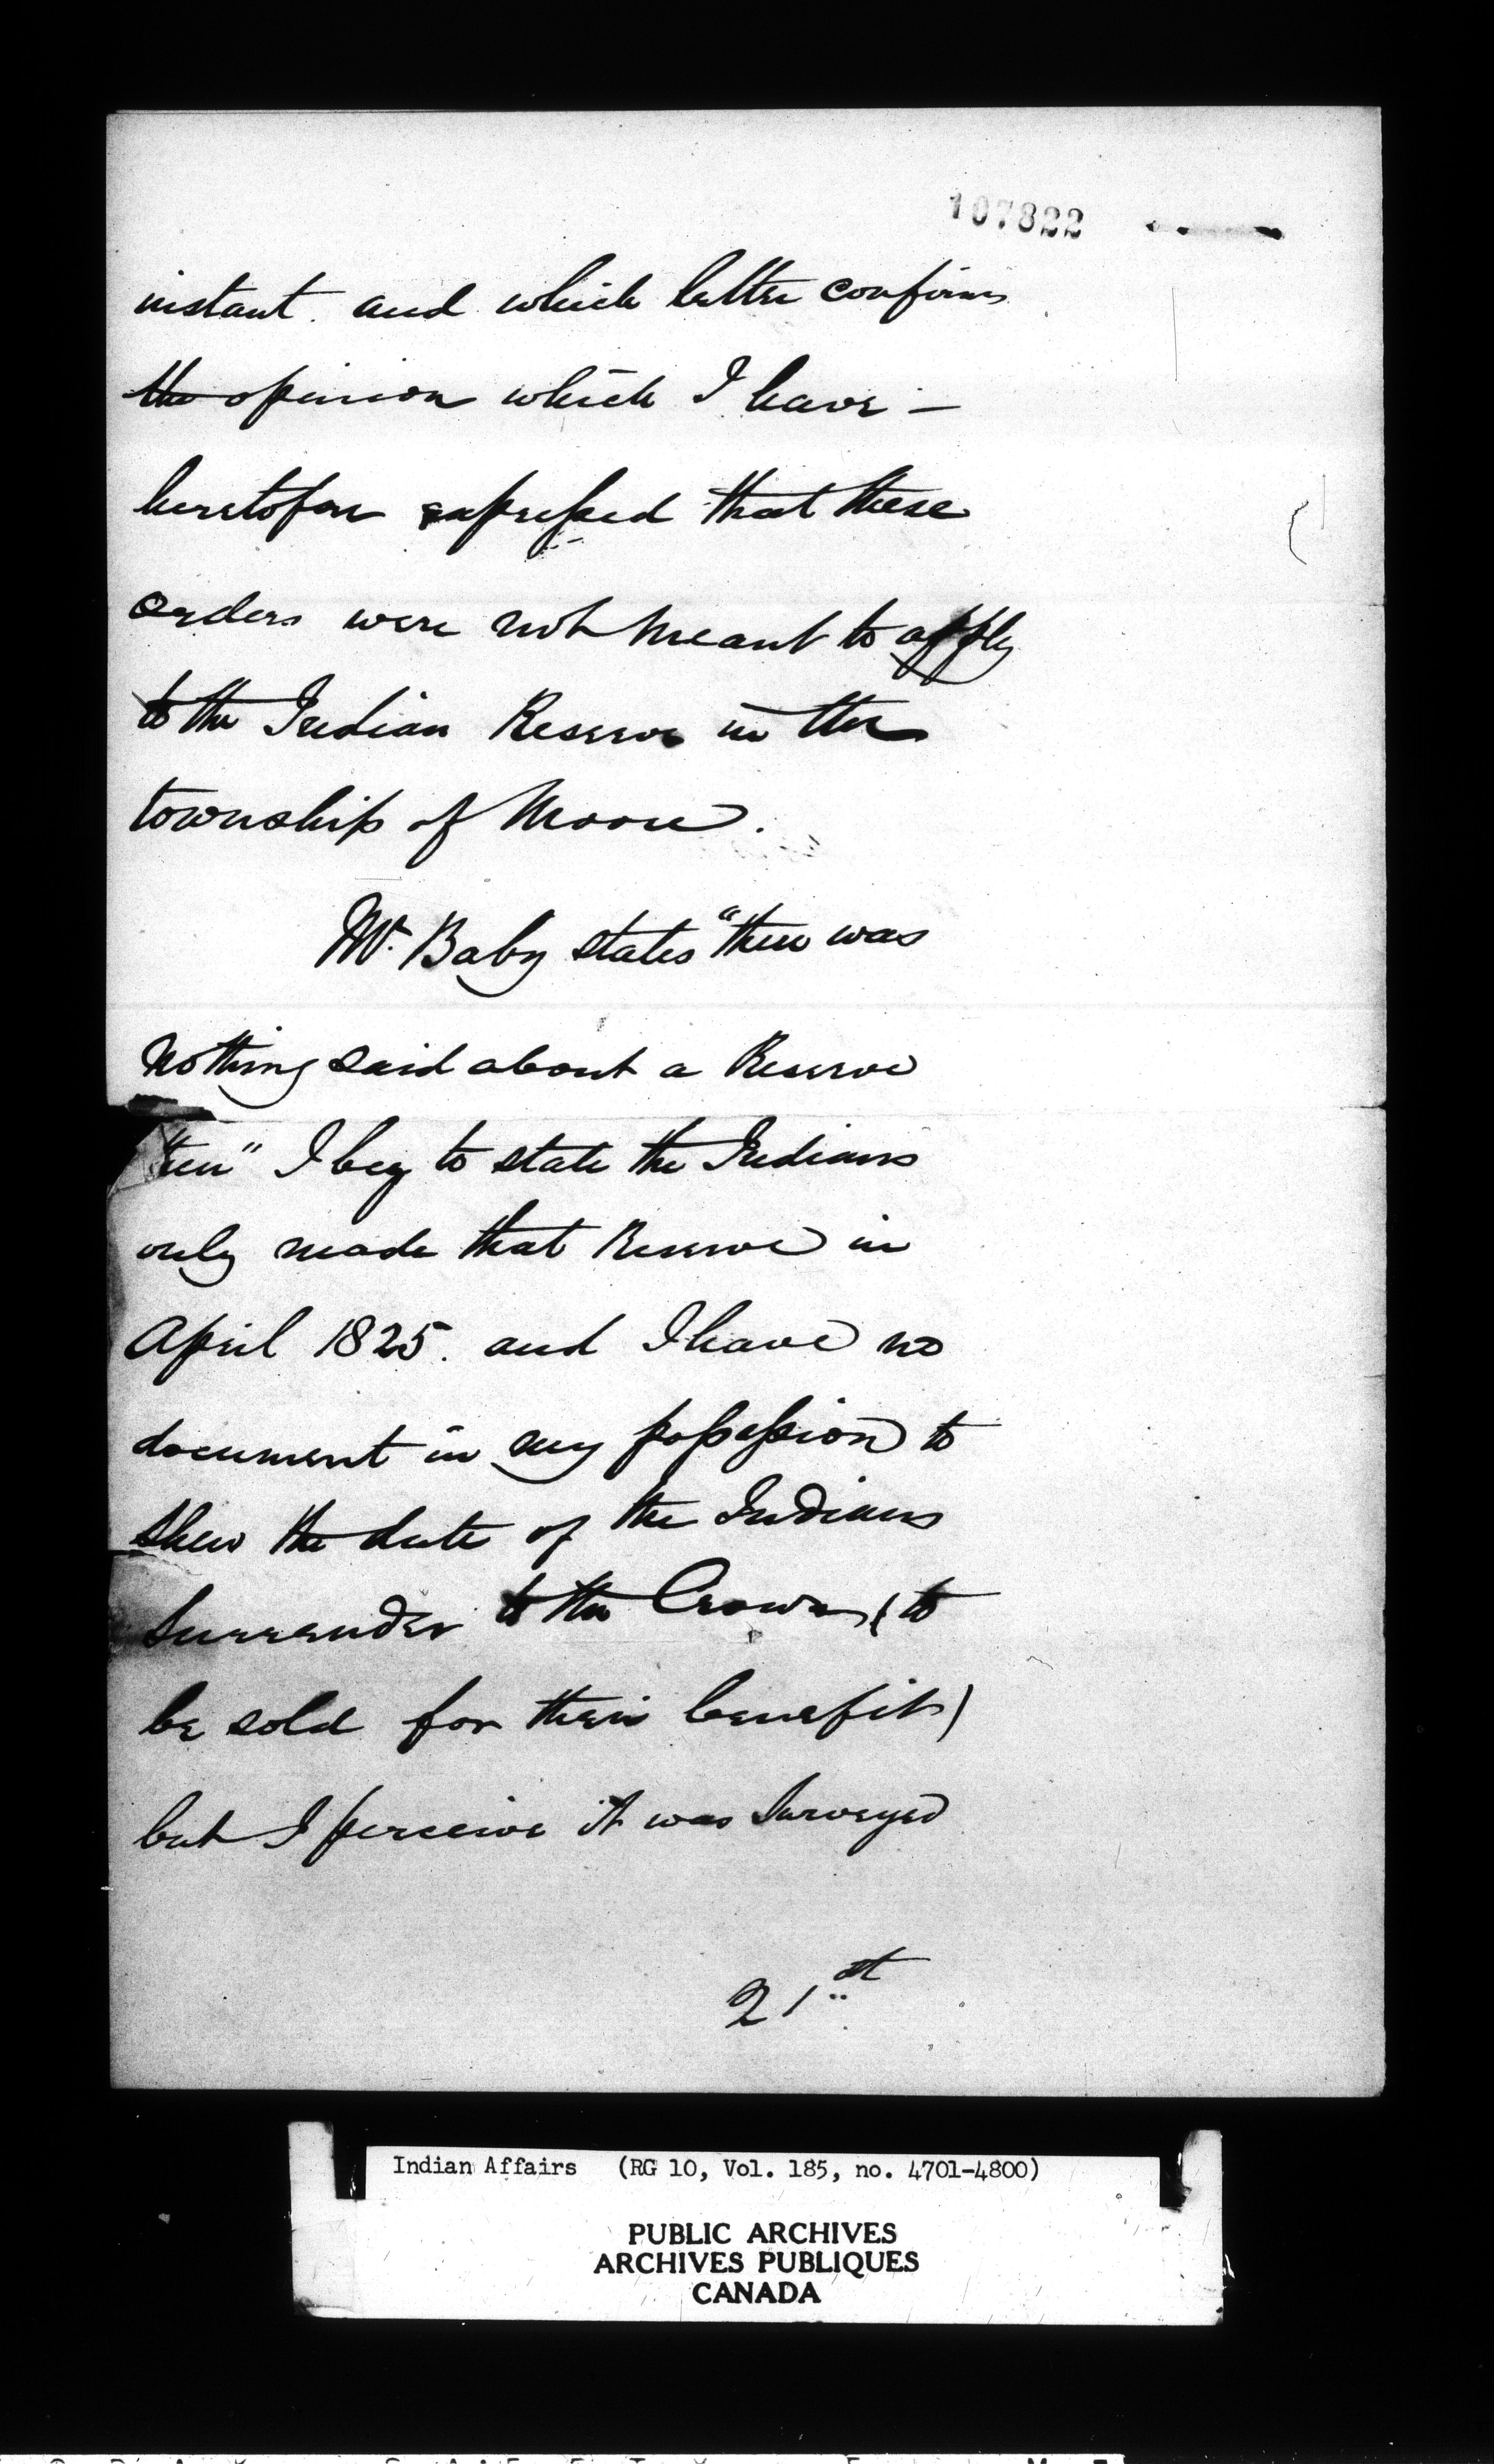 107822
instant. and which letter confirms
the opinion which I have —
heretofore expressed that these
orders were not meant to apply
to the Indian Reserve in the
township of Moore.
Mr. Baby states "there was
nothing said about a Reserve
then" I beg to state the Indians
only made that Reserve in
April 1825. and I have no
document in my possession to
shew the date of the Indians
Surrender to the Crown (to
be sold for their benefit)
but I perceive it was Surveyed
21st
Indian Affairs (RG 10, Vol. 185, no. 4701-4800)
PUBLIC ARCHIVES
ARCHIVES PUBLIQUES
CANADA